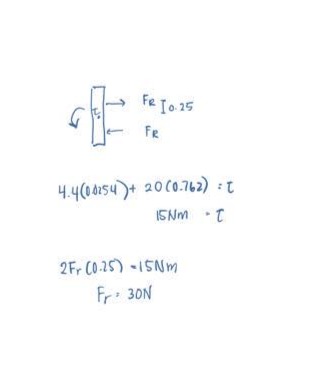 FR I 0.25
τ
FR
4.4(0.0254) + 20(0.762) = τ
15Nm = τ
2Fr (0.25) = 15Nm
Fr = 30N